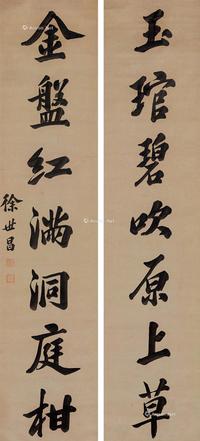 玉琯碧吹原上草
金盤紅滿洞庭柑
徐世昌